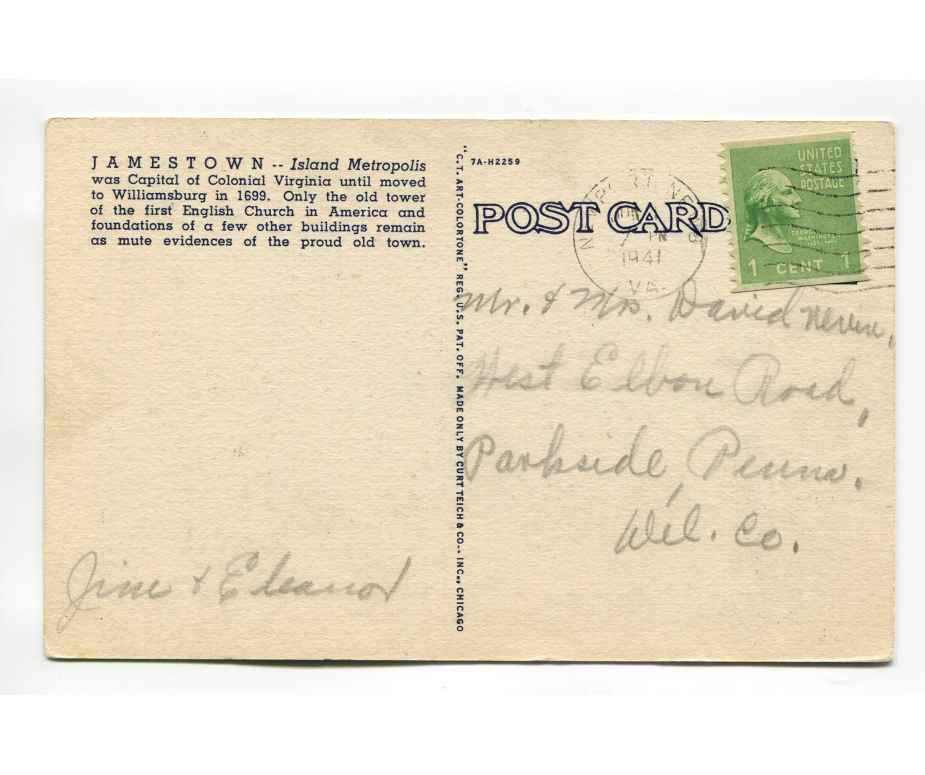 JAMESTOWN -- Island Metropolis
was Capital of Colonial Virginia until moved
to Williamsburg in 1699. Only the old tower
of the first English Church in America and
foundations of a few other buildings remain
as mute evidences of the proud old town.
Jim & Eleanor
"C.T. ART-COLORTONE" REG. U.S. PAT. OFF. MADE ONLY BY CURT TEICH & CO., INC., CHICAGO
7A-H2259
POST CARD
1941
VA.
UNITED
STATES
POSTAGE
1 CENT 1
Mr. & Mrs. David
West Elbon Road,
Parkside, Penna.
Co.